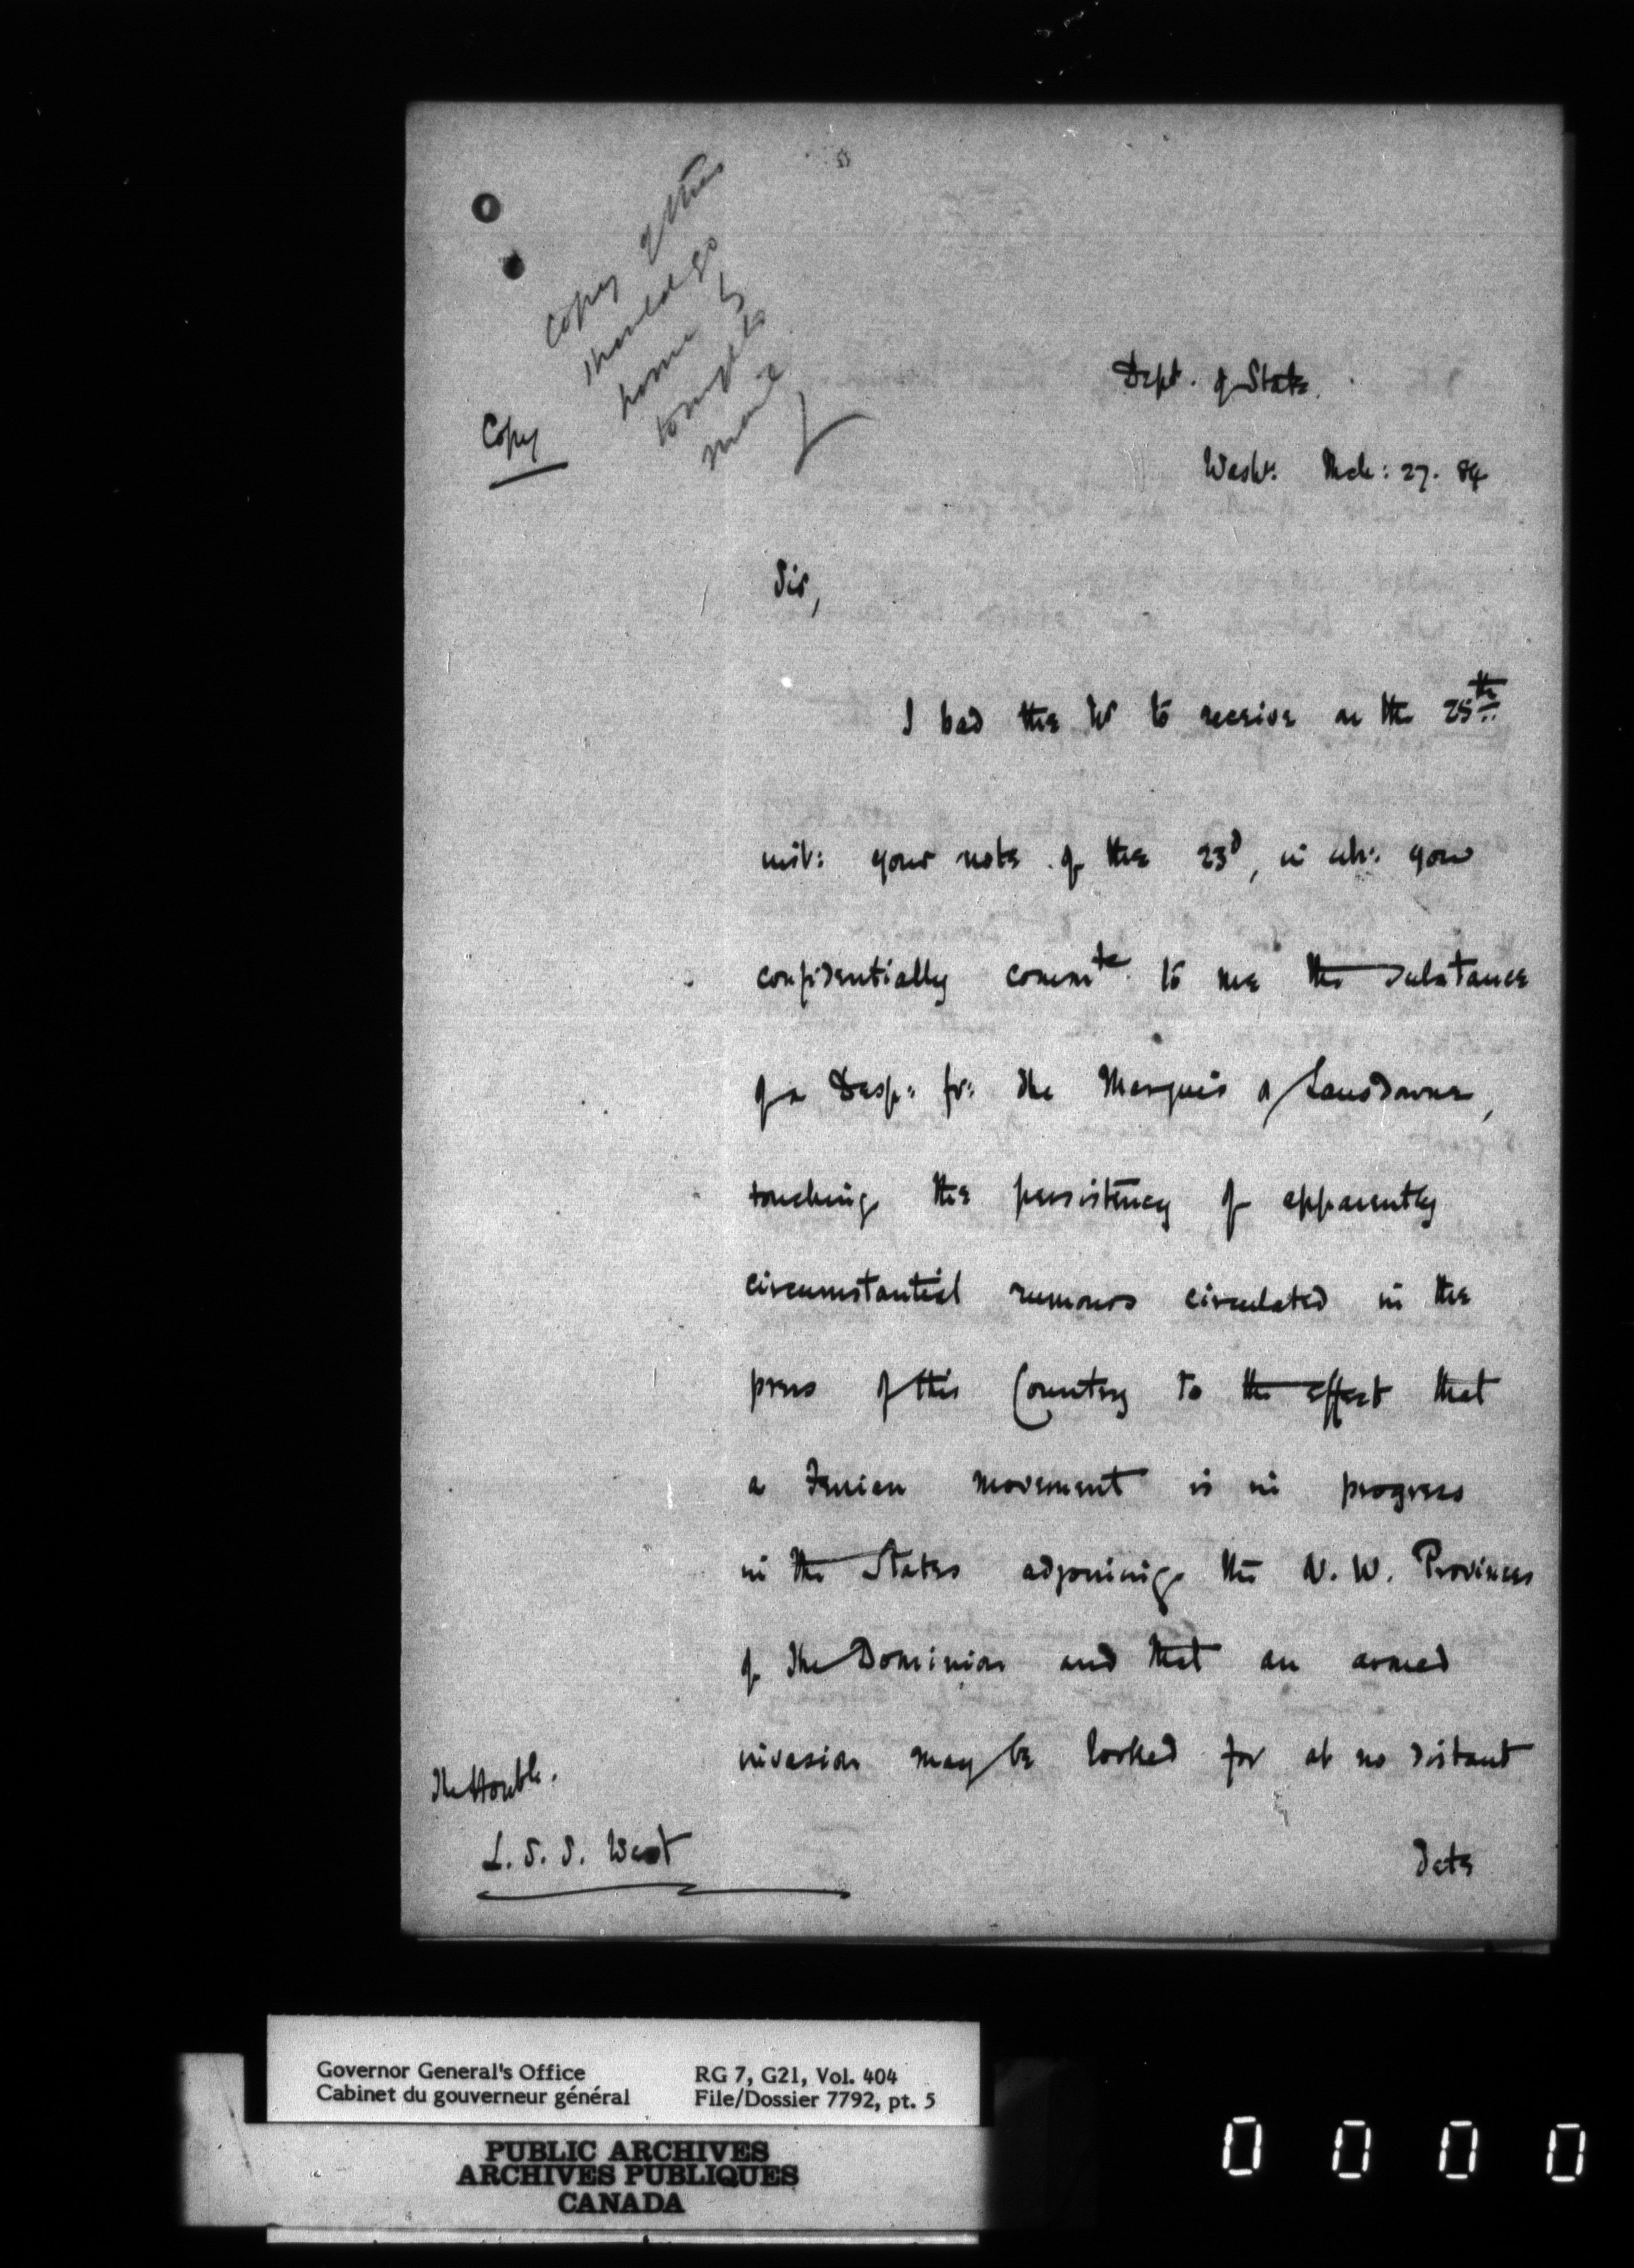 Copy of this
should go
home by
tonight's
mail
Copy
Dept. of State.
Washn: Mch: 27. 84
Sir,
I had the hr to receive on the 25th
inst: your note of the 23d, in wh: you
confidentially commte. to me the substance
of a Desp: fr: the Marquis of Lansdowne,
touching the persistency of apparently
circumstantial rumours circulated in the
press of this Country to the effect that
a Fenian movement is in progress
in the States adjoining the N. W. Provinces
of the Dominion and that an armed
invasion may be looked for at no distant
date
The Honble.
L. S. S. West
Governor General's Office
Cabinet du gouverneur général
RG 7, G21, Vol. 404
File/Dossier 7792, pt. 5
PUBLIC ARCHIVES
ARCHIVES PUBLIQUES
CANADA
0 0 0 0